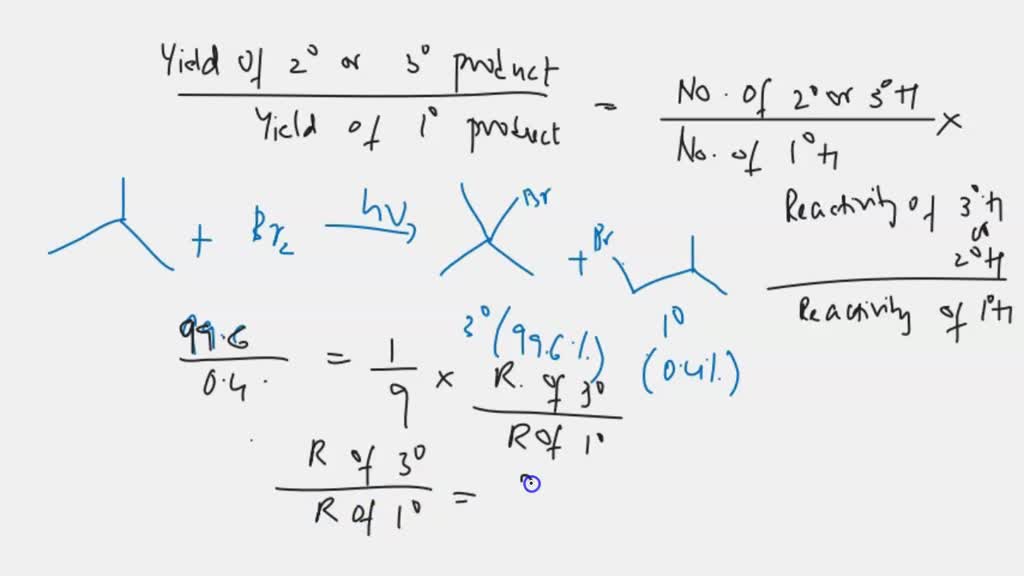 Yield of 2° or 3° product
Yield of 1° product
=
No. of 2° or 3°H
No. of 1°H
×
Reactivity of 3°H
or
2°H
Reactivity of 1°H
+ Br2 hν Br + Br
3° (99.6%) 1° (0.4%)
99.6
0.4
= 1
9
× R. of 3°
R of 1°
R of 3°
R of 1°
=